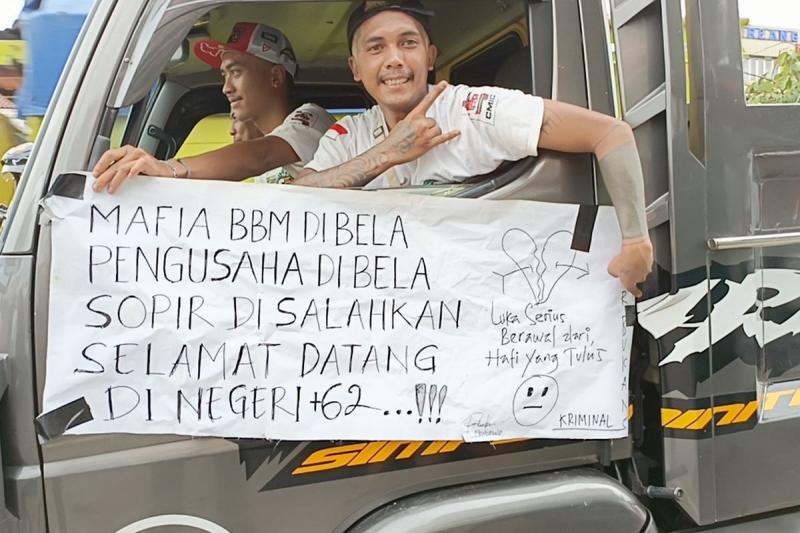 MAFIA BBM DIBELA
PENGUSAHA DIBELA
SOPIR DISALAHKAN
SELAMAT DATANG
DI NEGERI +62...!!!
Luka Serius
Berawal dari,
Hati Yang Tulus
KRIMINAL
CMC